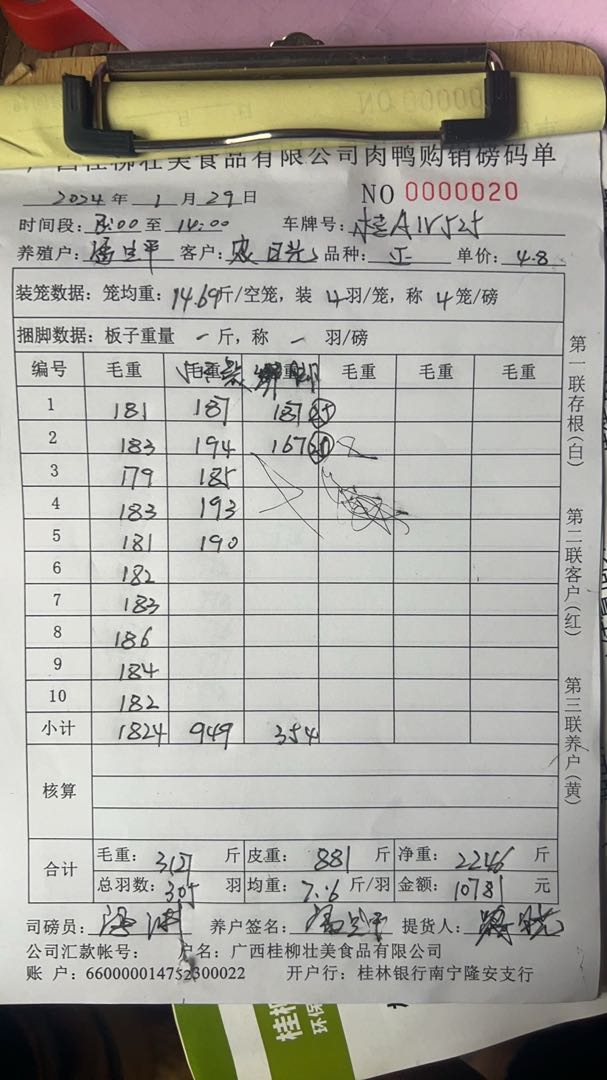 广西桂柳壮美食品有限公司肉鸭购销磅码单
2024年 1月29日 NO 0000020
时间段: 至 14:00 车牌号: 桂A1V525
养殖户: 客户: 品种: 正 单价: 4.8
装笼数据: 笼均重: 14.69斤/空笼, 装 4羽/笼, 称 4笼/磅
捆脚数据: 板子重量 一斤, 称 一 羽/磅
编号 毛重 毛重 毛重 毛重 毛重 毛重
1 181 187 187
2 183 194 167
3 179 185
4 183 193
5 181 190
6 182
7 183
8 186
9 184
10 182
小计 1824 949 354
核算
合计 毛重: 3127 斤 皮重: 881 斤 净重: 2246 斤
总羽数: 305 羽 均重: 7.36 斤/羽 金额: 10781 元
司磅员: 养户签名: 提货人:
公司汇款帐号: 户名: 广西桂柳壮美食品有限公司
账 户: 660000014752300022 开户行: 桂林银行南宁隆安支行
第一联存根(白)
第二联客户(红)
第三联养户(黄)